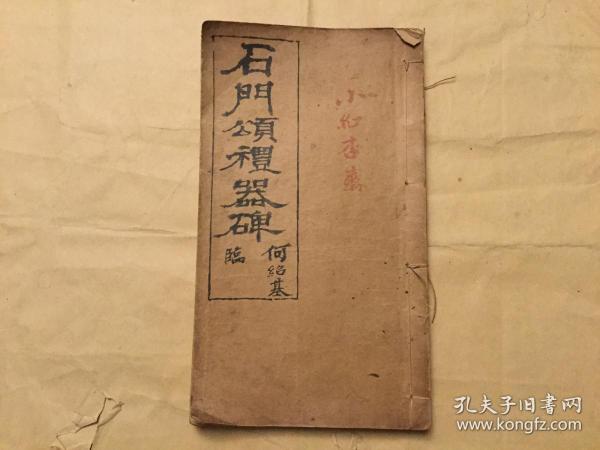 石門頌禮器碑
何紹基
臨
孔夫子旧书网
www.kongfz.com